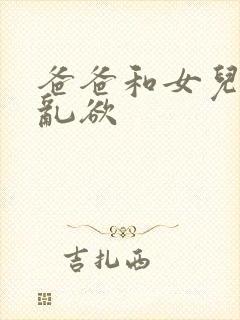 爸爸和女兒
亂欲
吉扎西